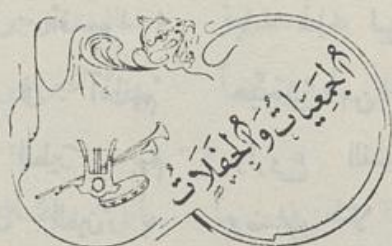 الجَمعيَّاتُ وَالحَفَلاتُ